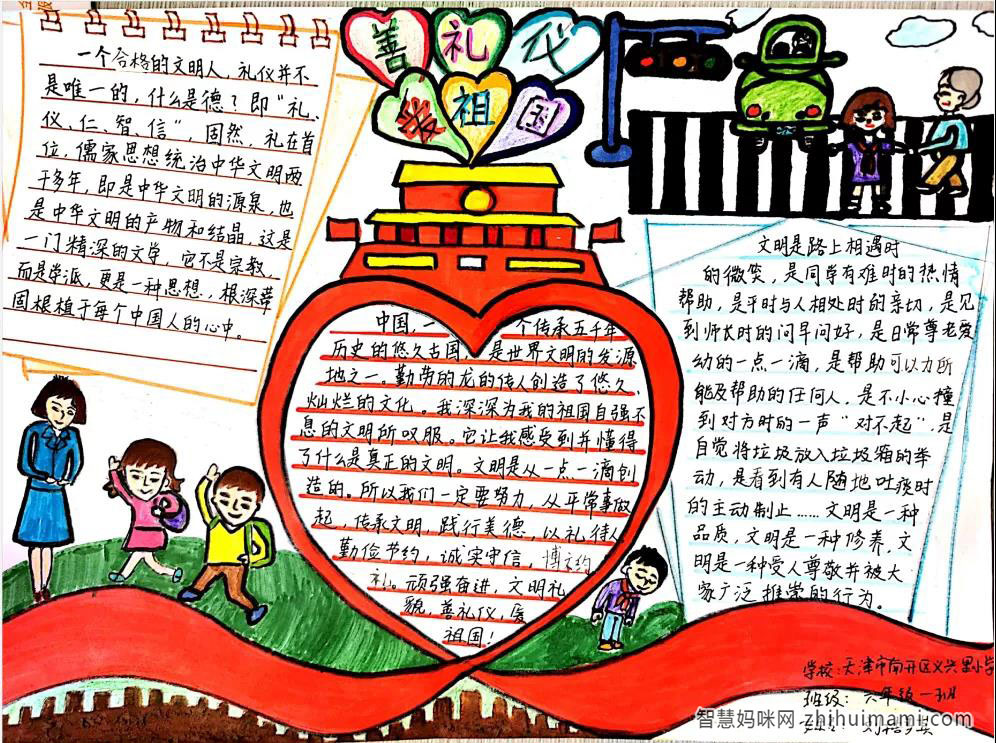 善礼仪
爱祖国
一个合格的文明人，礼仪并不
是唯一的，什么是德？即“礼、
仪、仁、智、信”，固然，礼在首
位，儒家思想统治中华文明两
千多年，即是中华文明的源泉，也
是中华文明的产物和结晶，这是
一门精深的文学，它不是宗教，
而是学派，更是一种思想，根深蒂
固根植于每个中国人的心中。
中国，一个传承五千年
历史的悠久古国，是世界文明的发源
地之一。勤劳的龙的传人创造了悠久、
灿烂的文化。我深深为我的祖国自强不
息的文明所叹服。它让我感受到并懂得
了什么是真正的文明。文明是从一点一滴创
造的。所以我们一定要努力，从平常事做
起，传承文明，践行美德，以礼待人
勤俭节约，诚实守信，博文约
礼。顽强奋进，文明礼
貌，善礼仪，爱
祖国！
文明是路上相遇时
的微笑，是同学有难时的热情
帮助，是平时与人相处时的亲切，是见
到师长时的问早问好，是日常尊老爱
幼的一点一滴，是帮助可以力所
能及帮助的任何人，是不小心撞
到对方时的一声“对不起”，是
自觉将垃圾放入垃圾箱的举
动，是看到有人随地吐痰时
的主动制止……文明是一种
品质，文明是一种修养，文
明是一种受人尊敬并被大
家广泛推崇的行为。
学校：天津市南开区义兴里小学
班级：六年级一班
智慧妈咪网 zhihuimami.com